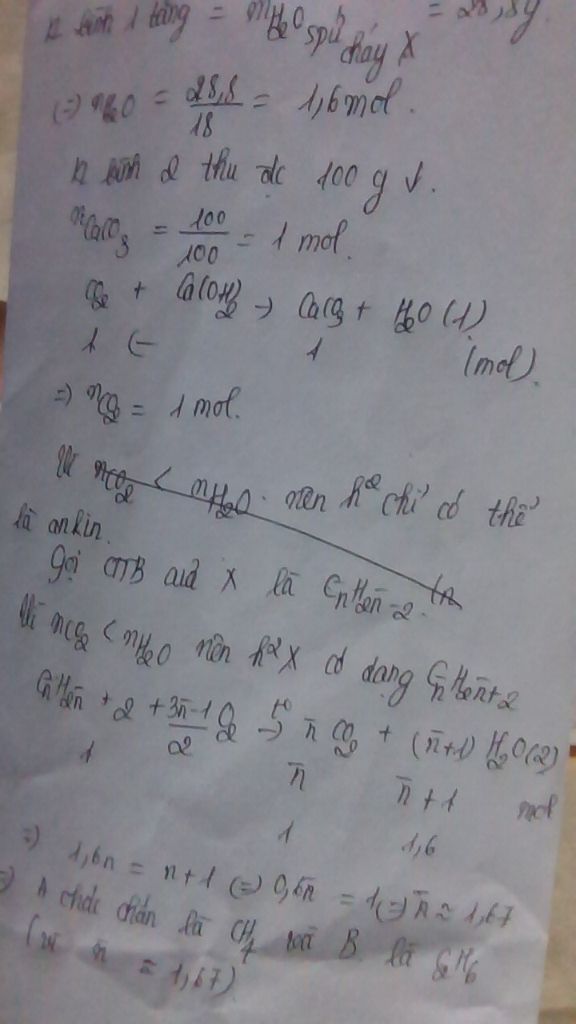 m bình 1 tăng = mH2O spứ cháy X = 28,8g.
(=) nH2O = 28,8/18 = 1,6 mol.
bình 2 thu đc 100 g ↓.
nCaCO3 = 100/100 = 1 mol.
CO2 + Ca(OH)2 → CaCO3 + H2O (1)
1 ← 1 (mol).
=) nCO2 = 1 mol.
Vì nCO2 < nH2O. nên h² chỉ có thể
là ankin.
Gọi CTTB của X là Cn̄H2n̄-2.
Vì nCO2 < nH2O nên h² X có dạng Cn̄H2n̄+2
Cn̄H2n̄+2 + 3n̄-1/2 O2 t°→ n̄ CO2 + (n̄+1) H2O (2)
1 n̄ n̄+1 mol
1 1,6
=) 1,6n = n+1 (=) 0,6n̄ = 1 (=) n̄ ≈ 1,67
=) A chắc chắn là CH4 và B là C2H6
(vì n̄ ≈ 1,67)